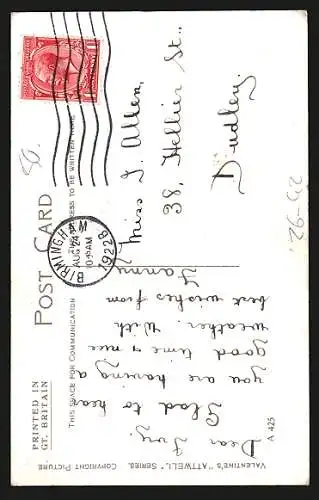 VALENTINE'S "ATTWELL" SERIES. COPYRIGHT PICTURE
A 425
PRINTED IN
GT. BRITAIN
POST CARD
THIS SPACE FOR COMMUNICATION
ADDRESS TO BE WRITTEN HERE
BIRMINGHAM
AUG 24
10 45AM
1922
B
Dear Ivy.
Glad to hear
you are having a
good time & nice
weather. With
best wishes from
Fanny
Miss I. Allen,
38, Hellier St.,
Dudley.